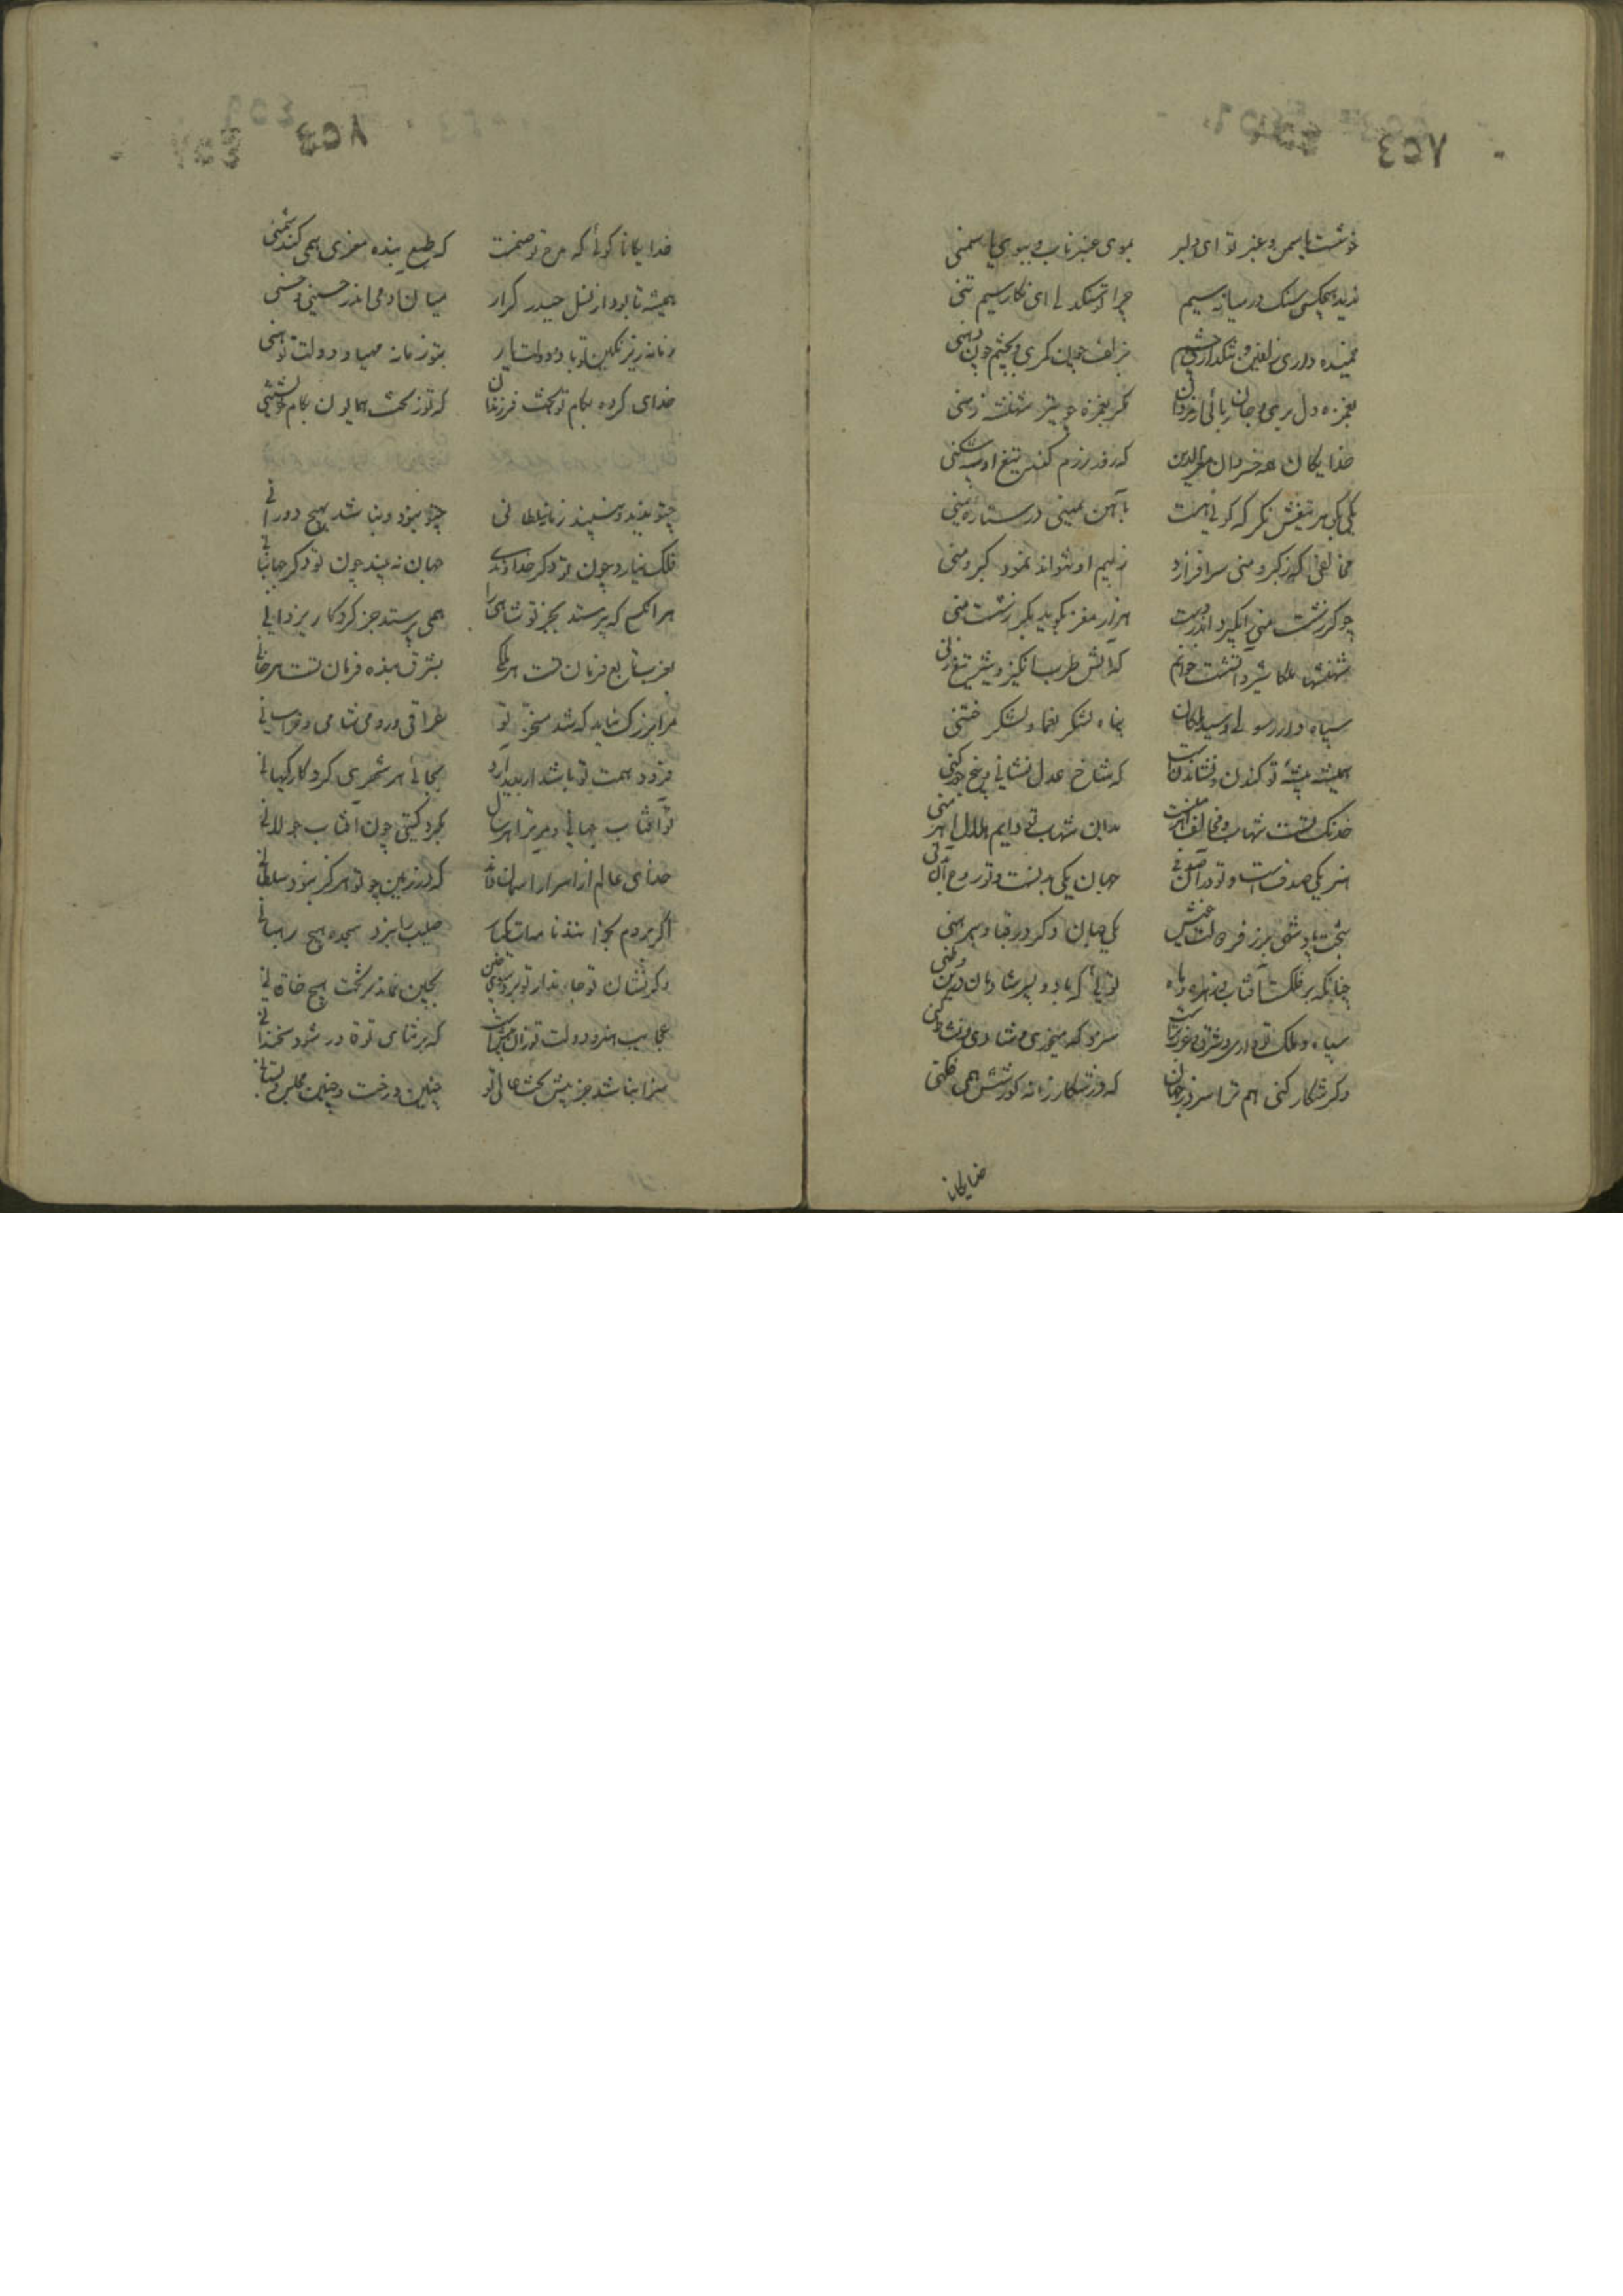 ٤٥٧
خوشست یاسمن و عنبر تو ای دلبر بموی عنبر ناب و ببوی یاسمنی
ندیده هیچکسی سنک در میانه سیم چرا تو سنکدلی ای نکار سیم تنی
خمیده داری زلفین و تنک داری چشم بزلف چون کمری و بچشم چون دهنی
بغمزه دل بری و جان ربائی از مردان مکر بغمزه چو تیر شهنشه زمنی
خدایکان همه خسروان معزالدین که روز رزم کند تیغ او سپه شکنی
یکی بکوهر تیغش نکر که کوئی هست بآهن یمنی در ستاره یمنی
مخالفی که ز کبر و منی سرافرازد ز بیم او نتواند نمود کبر و منی
چو کرز شست منی بر کیرد اندر دست هزار مغز بکوبد بکرز شست منی
شهنشها ملکا شیر دانمت خوانم که آتش طرب انکیز و شیر تیغ زنی
سپاه دار رسولی و سید ملکان پناه لشکر یغما و لشکر ختنی
همیشه پیشه تو کندن و نشاندنست که شاخ عدل نشانی و بیخ جور کنی
خدنک تست شهاب و مخالف اهرمنست بدین شهاب تو دایم هلاک اهرمنی
هنر یکی صدفست و تو در آن صدفی جهان یکی بدنست و تو روح آن بدنی
بتخت پادشهی بر ز فر طلعت خویش یکی جهان دکر در قبا و پیرهنی
چنانکه بر فلکست آفتاب و زهره و ماه توئی که با دو پسر شادمان درین وطنی
سپاه و ملک تو داری و شرق و غرب تراست سزد که می خوری و شادی و نشاط کنی
وکر شکار کنی هم ترا سزد بجهان که در شکار زمانه کوزنش همی فکنی
خدایکانا
٤٥٨
خدایکانا کوئی که مدح تو صنمست که طبع بنده معزی همی کند شمنی
همیشه تا بود از نسل حیدر کرار میان آدمی اندر حسینی و حسنی
زمانه زیر نکین تو باد و دولت یار بتو زمانه مهیا و دولت تو هنی
خدای کرده بکام تو تخت فرزندان که تو ز تخت همایون بکام خویشتنی
چتو ندید و نبیند زمانه سلطانی چتو نبود و نباشد بهیچ دورانی
فلک نیارد چون تو دکر خداوندی جهان نه بیند چون تو دکر جهانبانی
هر انکسی که پرستد بجز تو شاهی را همی پرستد جز کردکار یزدانی
بغرب تابع فرمان تست هر ملکی بشرق بنده فرمان تست هر خانی
هر آن بزرک نباید که شد مسخر تو عراقی و رومی و شامی و خراسانی
فزود همت تو باشد ار پدید آرد بجای هر شهری کردکار کیهانی
تو آفتاب جهانی و می برآئی هر سال بکرد کیتی چون آفتاب جولانی
خدای عالم از اسرار آسمان داند که در زمین چو تو هرکز نبود سلطانی
اکر بروم بخوانند نامت یکبار صلیب را نبرد سجده هیچ رهبانی
وکر نشان تو جاندار تو برد سوی چین بچین نماند بر تخت هیچ خاقانی
عجایب هنر و دولت تو زان بیشست که بر ثنای تو قادر شود سخندانی
سزا نباشد جز پیش تخت عالی تو چنین درخت و چنین مجلس و کلستانی